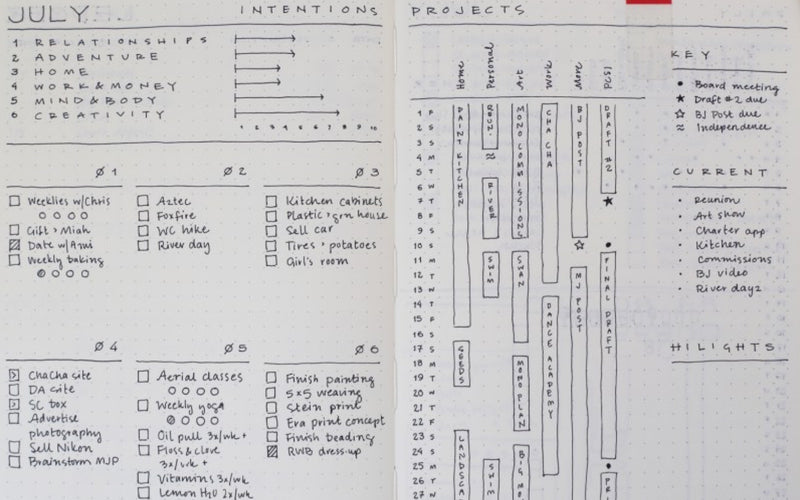 JULY
INTENTIONS
1 RELATIONSHIPS
2 ADVENTURE
3 HOME
4 WORK & MONEY
5 MIND & BODY
6 CREATIVITY
1 2 3 4 5 6 7 8 9 10
Ø1
Weeklies w/Chris
Gift > Miah
Date w/Ami
Weekly baking
Ø2
Aztec
Foxfire
WC hike
River day
Ø3
Kitchen cabinets
Plastic > grn house
Sell car
Tires > potatoes
Girl's room
Ø4
ChaCha site
DA site
SC box
Advertise
photography
Sell Nikon
Brainstorm MJP
Ø5
Aerial classes
Weekly yoga
Oil pull 3x/wk +
Floss & clove
3x/wk +
Vitamins 3x/wk +
Lemon H2O 2x/wk
Ø6
Finish painting
5x5 weaving
Stein print
Era print concept
Finish beading
RWB dress-up
PROJECTS
Home
Personal
Art
Work
More
PCSI
1 F
2 S
3 S
4 M
5 T
6 W
7 T
8 F
9 S
10 S
11 M
12 T
13 W
14 T
15 F
16 S
17 S
18 M
19 T
20 W
21 T
22 F
23 S
24 S
25 M
26 T
27 W
PAINT KITCHEN
SEEDS
LANDSCA
REUN.
RIVER
SWIM
SWIM
MONO COMMISSIONS
SWAN
MONOPLAN
BIG MO
CHA CHA
DANCE ACADEMY
BJ POST
MJ POST
DRAFT #2
FINAL DRAFT
PRI
KEY
• Board meeting
★ Draft #2 due
☆ BJ Post due
≈ Independence
CURRENT
• Reunion
• Art show
• Charter app
• Kitchen
• Commissions
• BJ video
• River day2
HILIGHTS